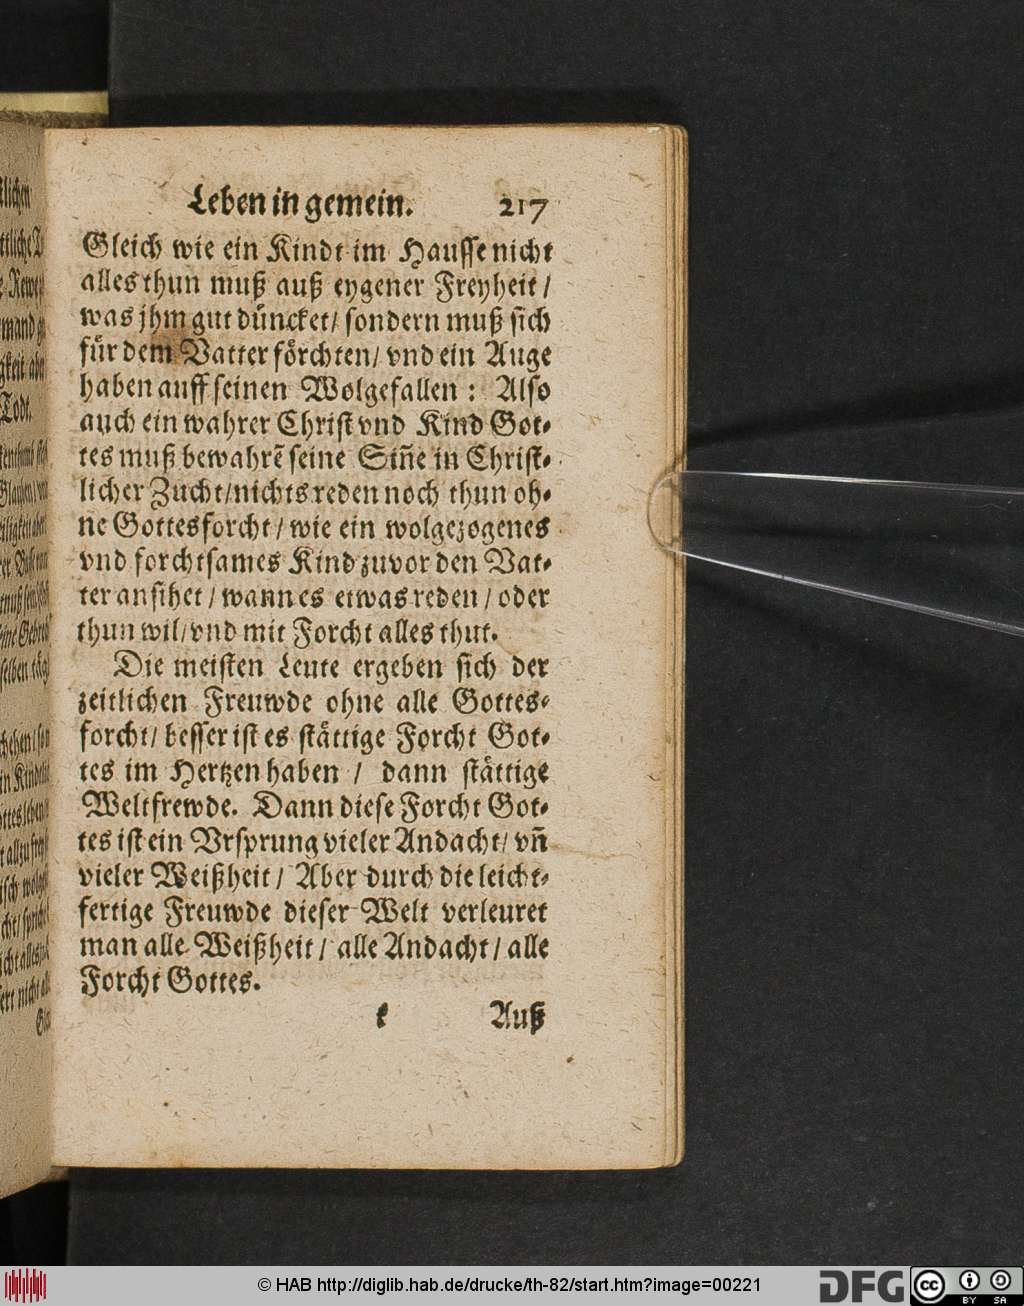 Leben in gemein. 217
Gleich wie ein Kindt im Hausse nicht
alles thun muß auß eygener Freyheit /
was jhm gut düncket / sondern muß sich
für dem Vatter förchten / vnd ein Auge
haben auff seinen Wolgefallen : Also
auch ein wahrer Christ vnd Kind Got⸗
tes muß bewahrẽ seine Siñe in Christ⸗
licher Zucht / nichts reden noch thun oh⸗
ne Gottesforcht / wie ein wolgezogenes
vnd forchtsames Kind zuvor den Vat⸗
ter ansihet / wann es etwas reden / oder
thun wil / vnd mit Forcht alles thut.
Die meisten Leute ergeben sich der
zeitlichen Freuwde ohne alle Gottes⸗
forcht / besser ist es stättige Forcht Got⸗
tes im Hertzen haben / dann stättige
Weltfrewde. Dann diese Forcht Got⸗
tes ist ein Vrsprung vieler Andacht / vñ
vieler Weißheit / Aber durch die leicht⸗
fertige Freuwde dieser Welt verleuret
man alle Weißheit / alle Andacht / alle
Forcht Gottes.
k Auß
© HAB http://diglib.hab.de/drucke/th-82/start.htm?image=00221
DFG cc BY SA